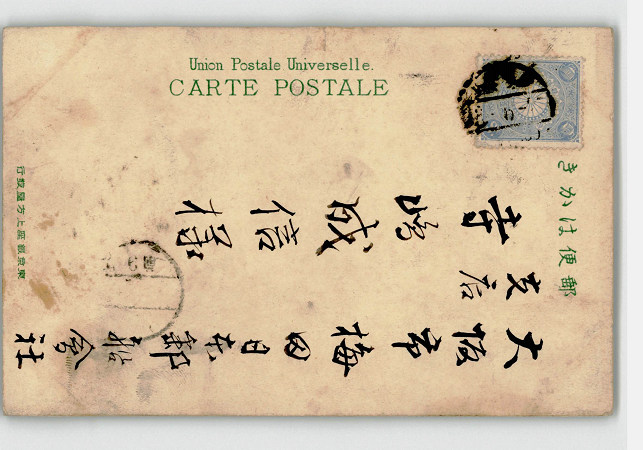 Union Postale Universelle.
CARTE POSTALE
郵便はかき
大阪市梅田日本郵船會社
支店
寺崎成信様
東京銀座上方屋發行